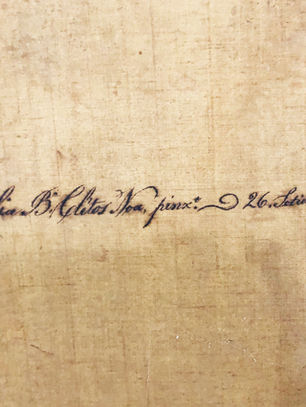 ia B.ª Clitos Noa, pinx.ᵗ 26.